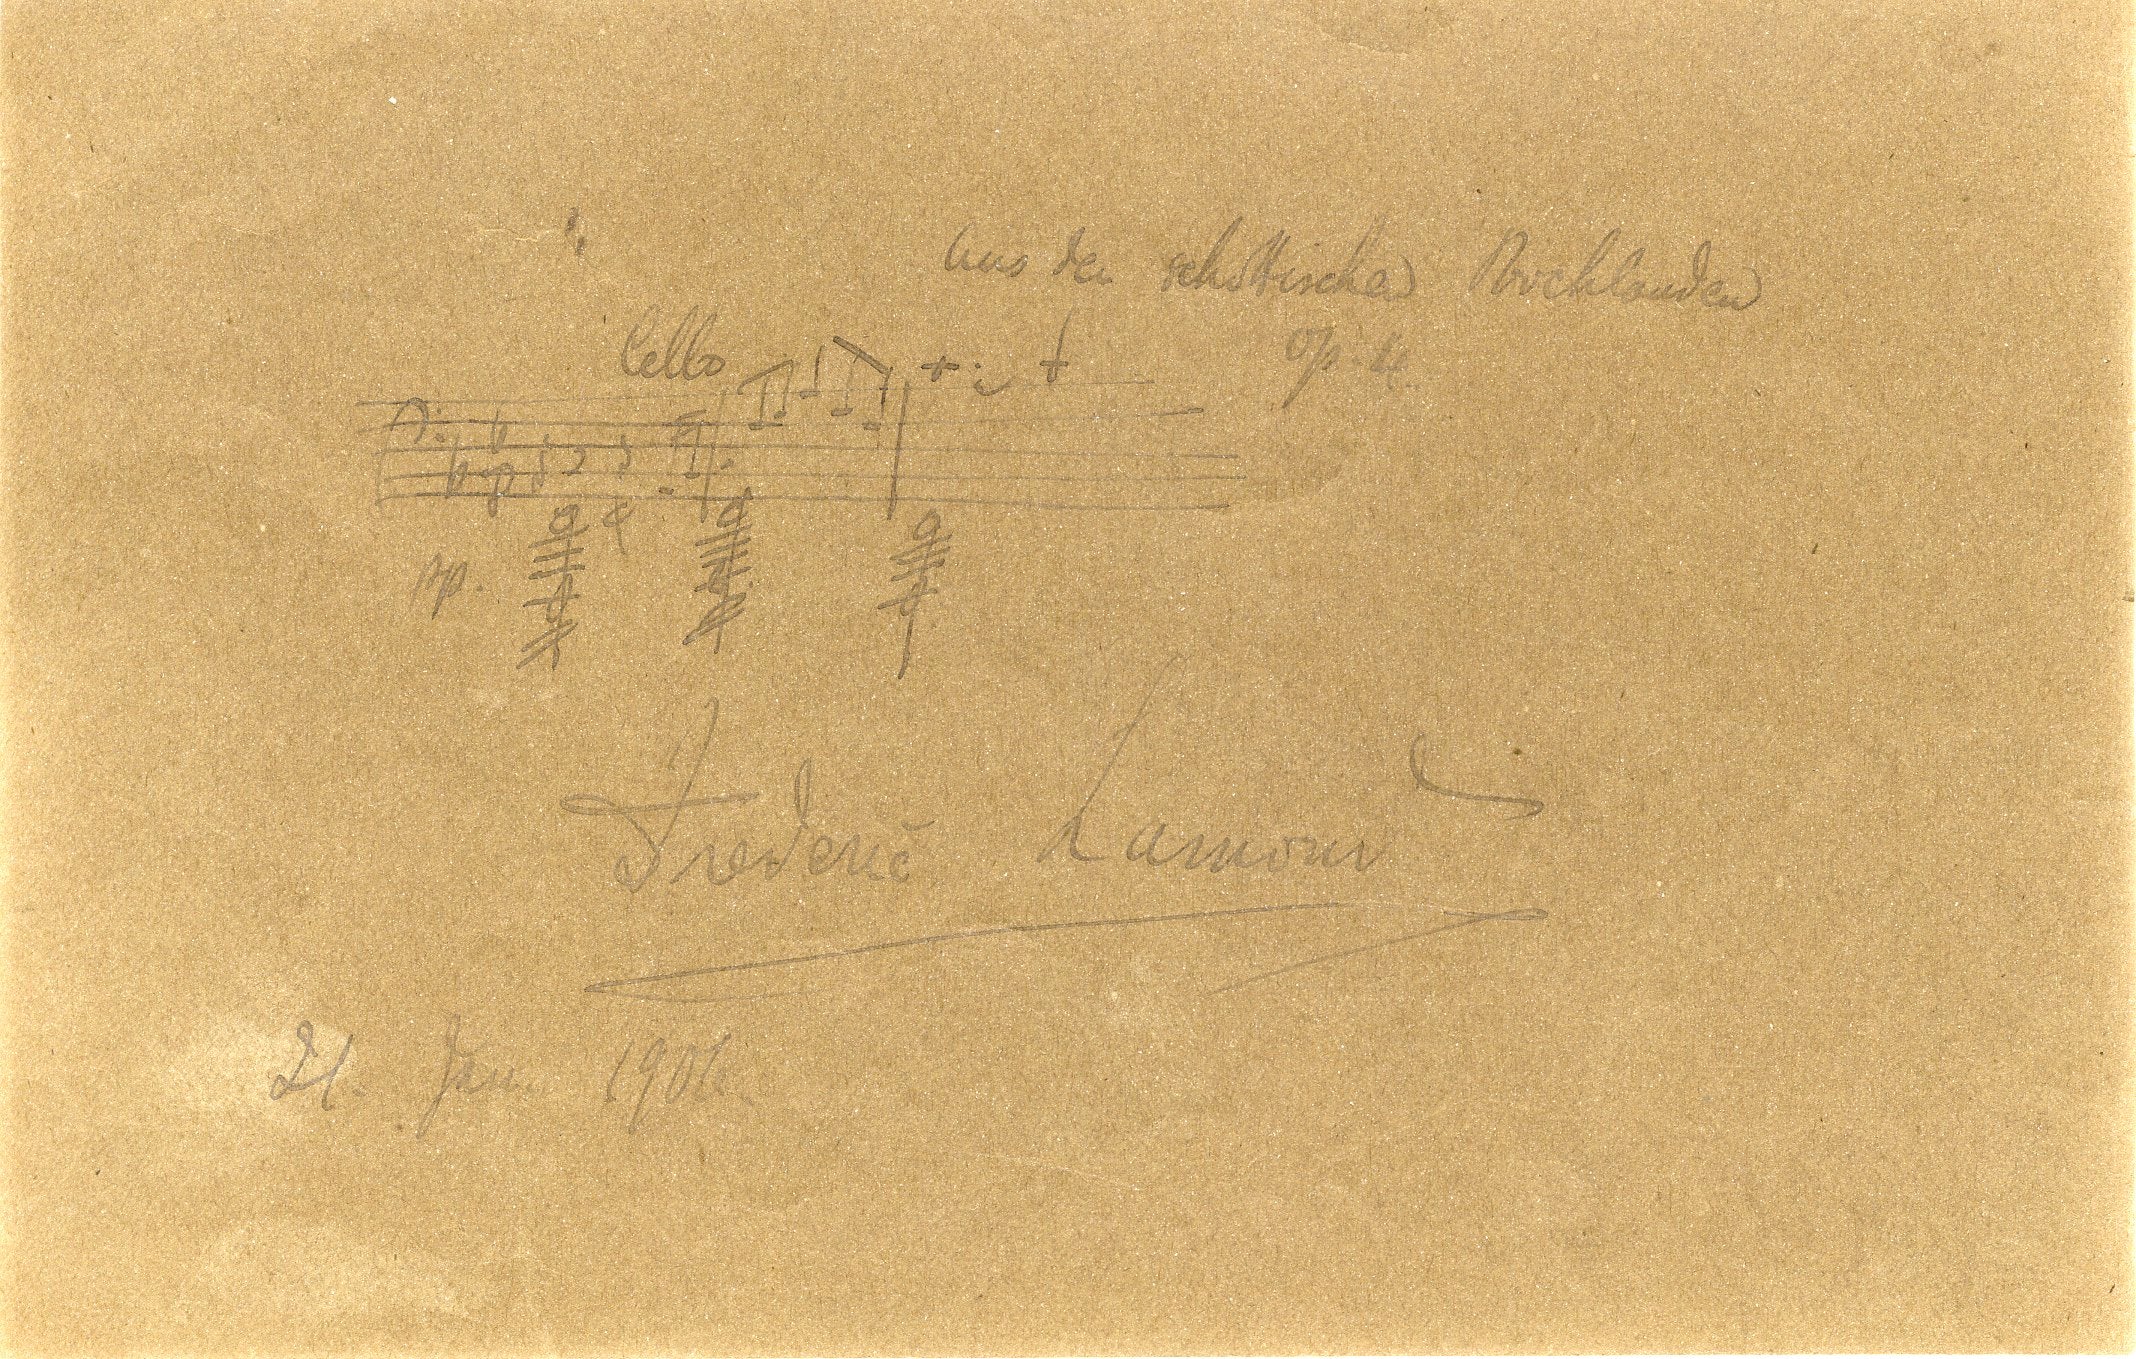 Aus den schottischen Hochlanden
Cello
op. 4.
pp.
Frederic Lamond
21. Jan. 1901.